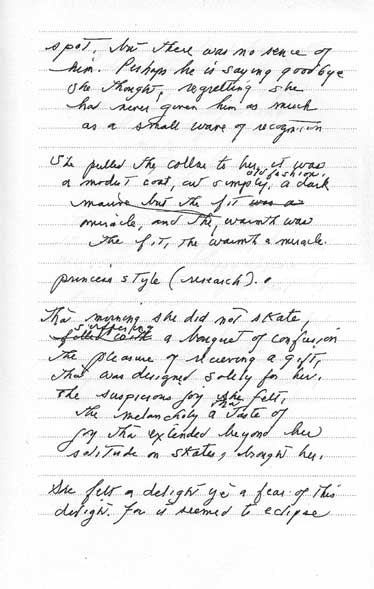 spot, but there was no sence of
him. Perhaps he is saying goodbye
she thought, regretting she
had never given him as much
as a small wave of recognition
She pulled the collar to her, it was
old fashion.
a modest coat, cut simply, a dark
mauve but the fit was a
miracle, and the, warmth was
the fit, the warmth a miracle.
princess style (research).
That morning she did not skate,
suffering
filled with a bouquet of confusion
the pleasure of receiving a gift,
that was designed solely for her.
The suspicious joy she felt,
the melancholy a taste of
joy that extended beyond her
solitude on skates, brought her.
She felt a delight yet a fear of this
delight. For it seemed to eclipse